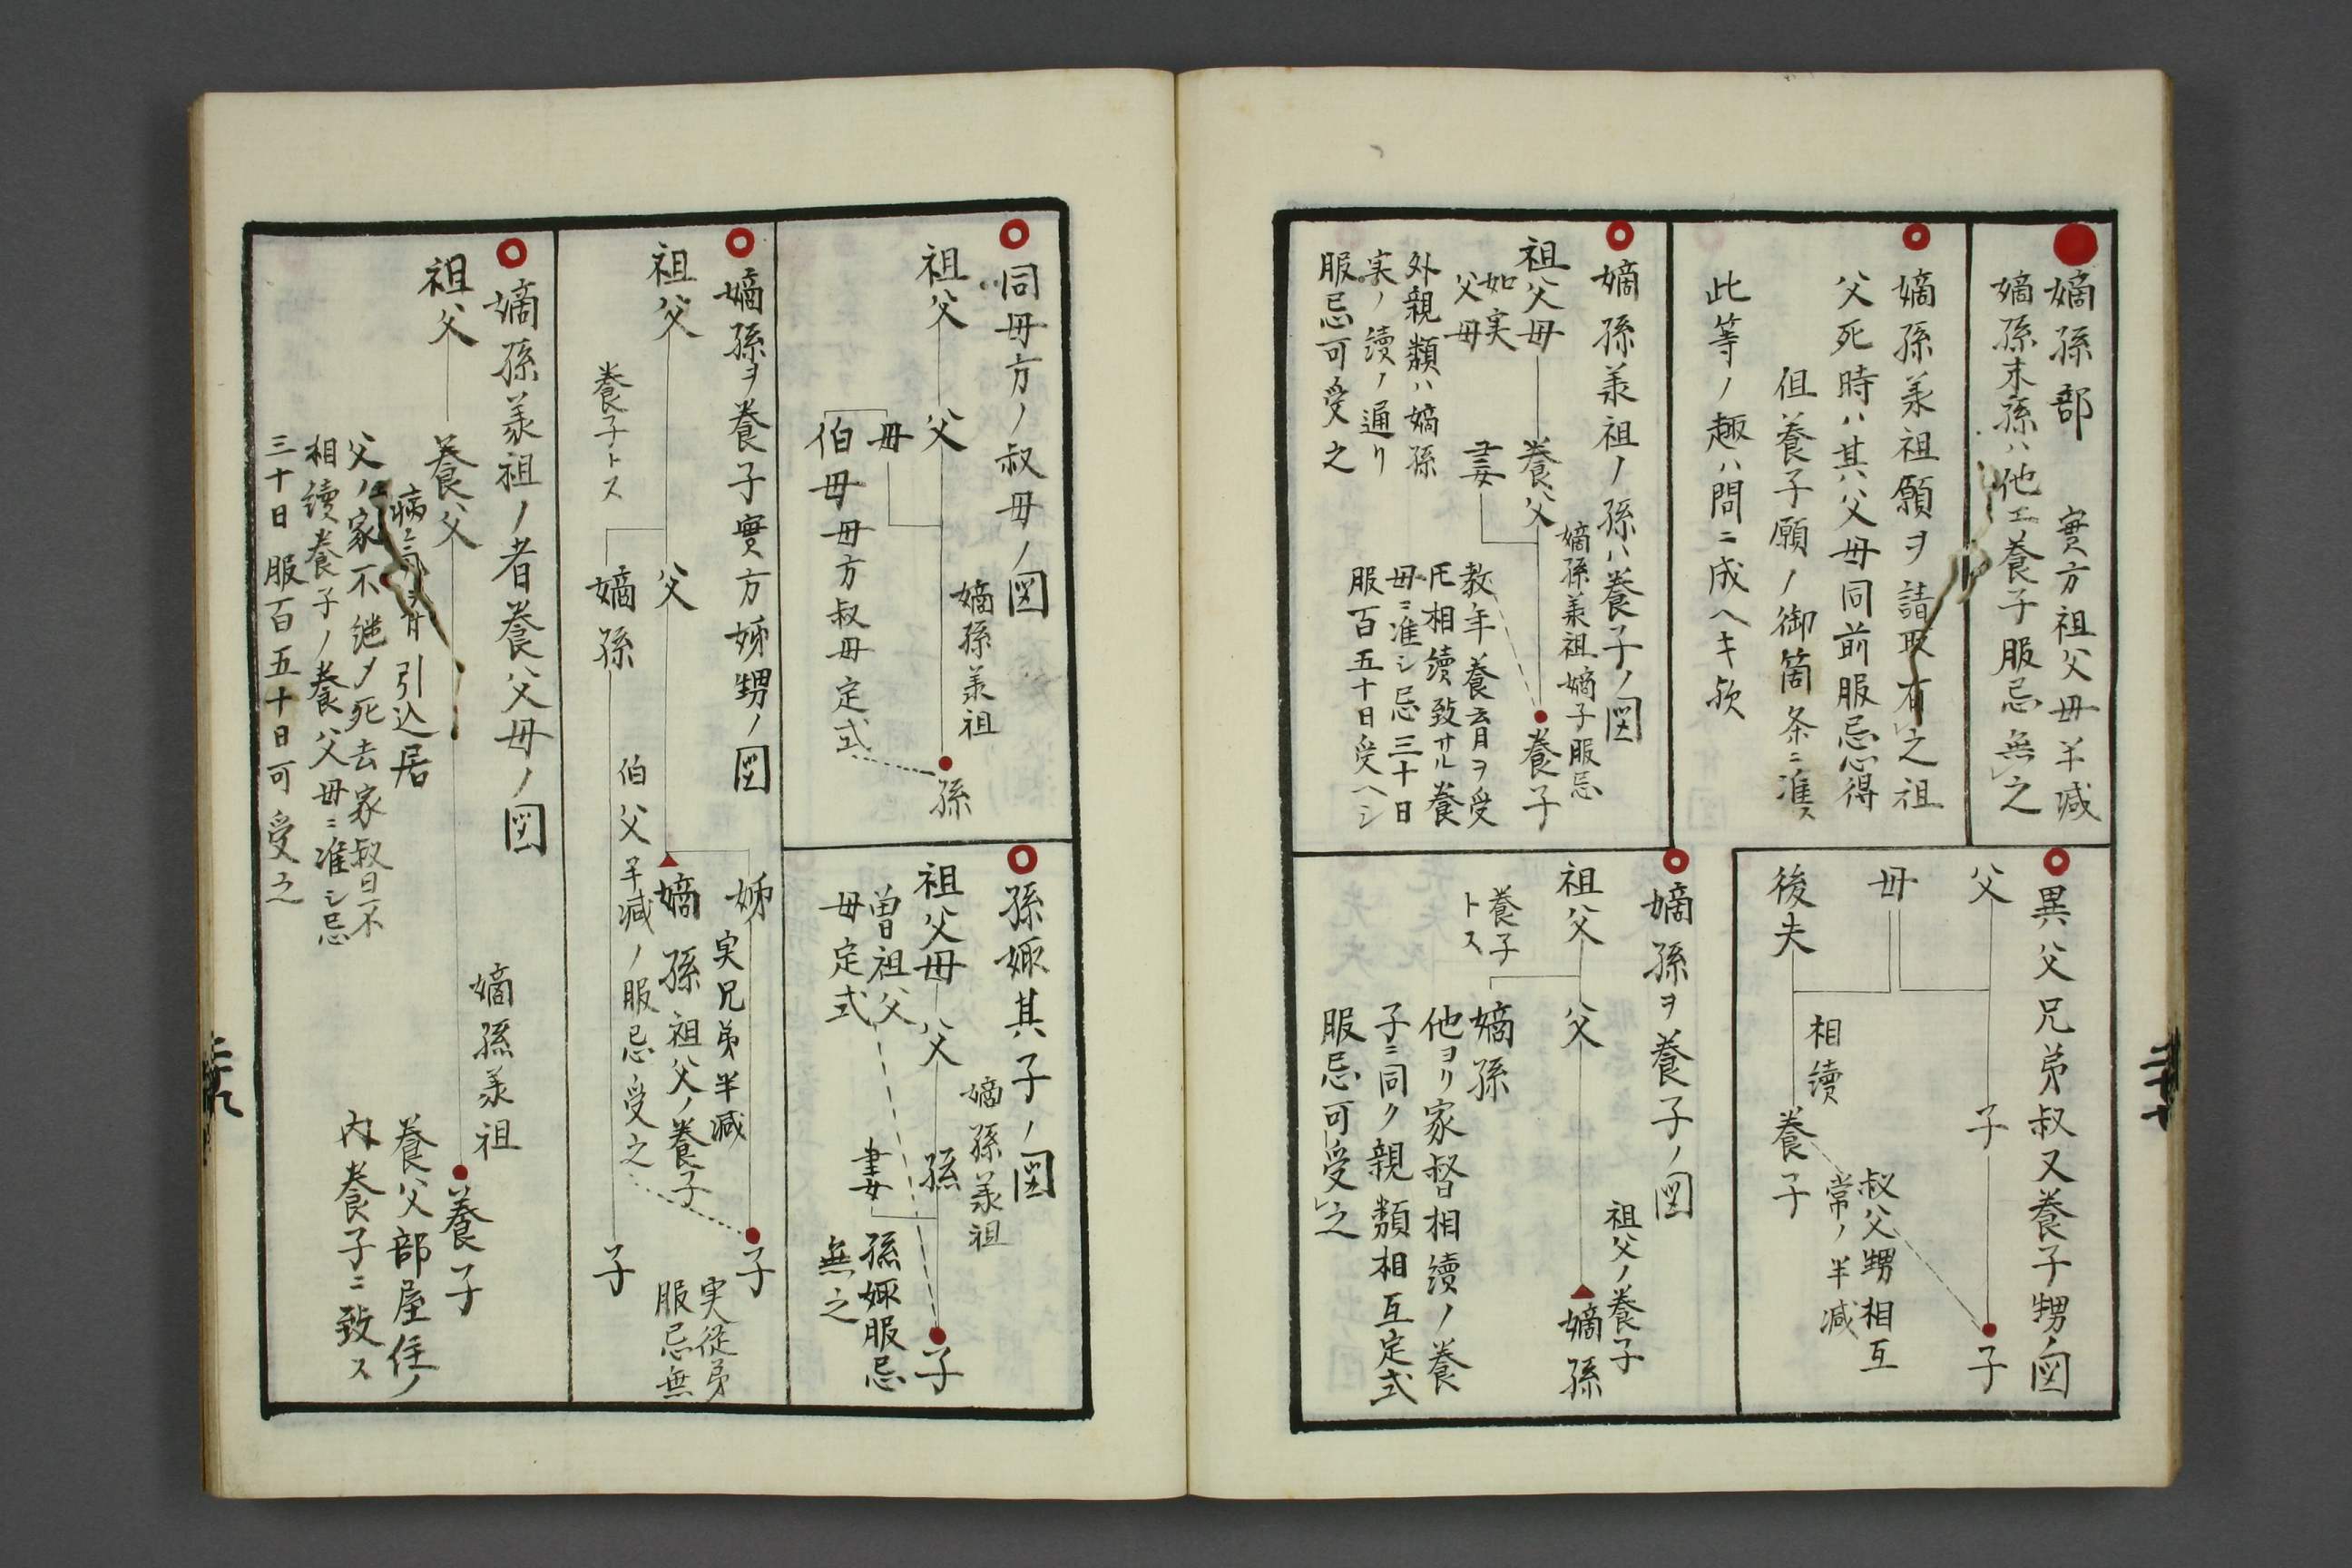 嫡孫部　實方祖父母半减
嫡孫末孫ハ他エ養子服忌無之
嫡孫羕祖願ヲ請取有之祖
父死時ハ其父母同前服忌得
但養子願ノ御箇条ニ准ス
此等ノ趣ハ問ニ成ヘキ欤
嫡孫羕祖ノ孫ハ養子ノ図
嫡孫羕祖嫡子服忌
祖父母
養父
養子
如実
父母
妻
外親類ハ嫡孫
実ノ續ノ通リ
服忌可受之
教年養育ヲ受
凥相續致サル養
母ニ准シ忌三十日
服百五十日受ヘシ
異父兄弟叔又養子甥ノ図
父
子
子
母
後夫
相續
養子
叔父甥相互
常ノ半减
嫡孫ヲ養子ノ図
祖父ノ養子
祖父
父
嫡孫
養子
トス
嫡孫
他ヨリ家督相續ノ養
子ニ同ク親類相互定式
服忌可受之
同母方ノ叔母ノ図
嫡孫羕祖
祖父
父
孫
母
伯母母方叔母定式
孫娵其子ノ図
嫡孫羕祖
祖父母
父
孫
子
曽祖父
母定式
妻
孫娵服忌
無之
嫡孫ヲ養子實方姊甥ノ図
祖父
父
嫡孫
祖父ノ養子
養子トス
嫡孫
子
伯父半减ノ服忌受之
姊
実兄弟半减
子
実従弟
服忌無
嫡孫羕祖ノ者養父母ノ図
祖父
養父
嫡孫羕祖
養子
引込居
父ノ家不継〆死去家叔旦不
相續養子ノ養父母ニ准シ忌
三十日服百五十日可受之
養父部屋住ノ
内養子ニ致ス